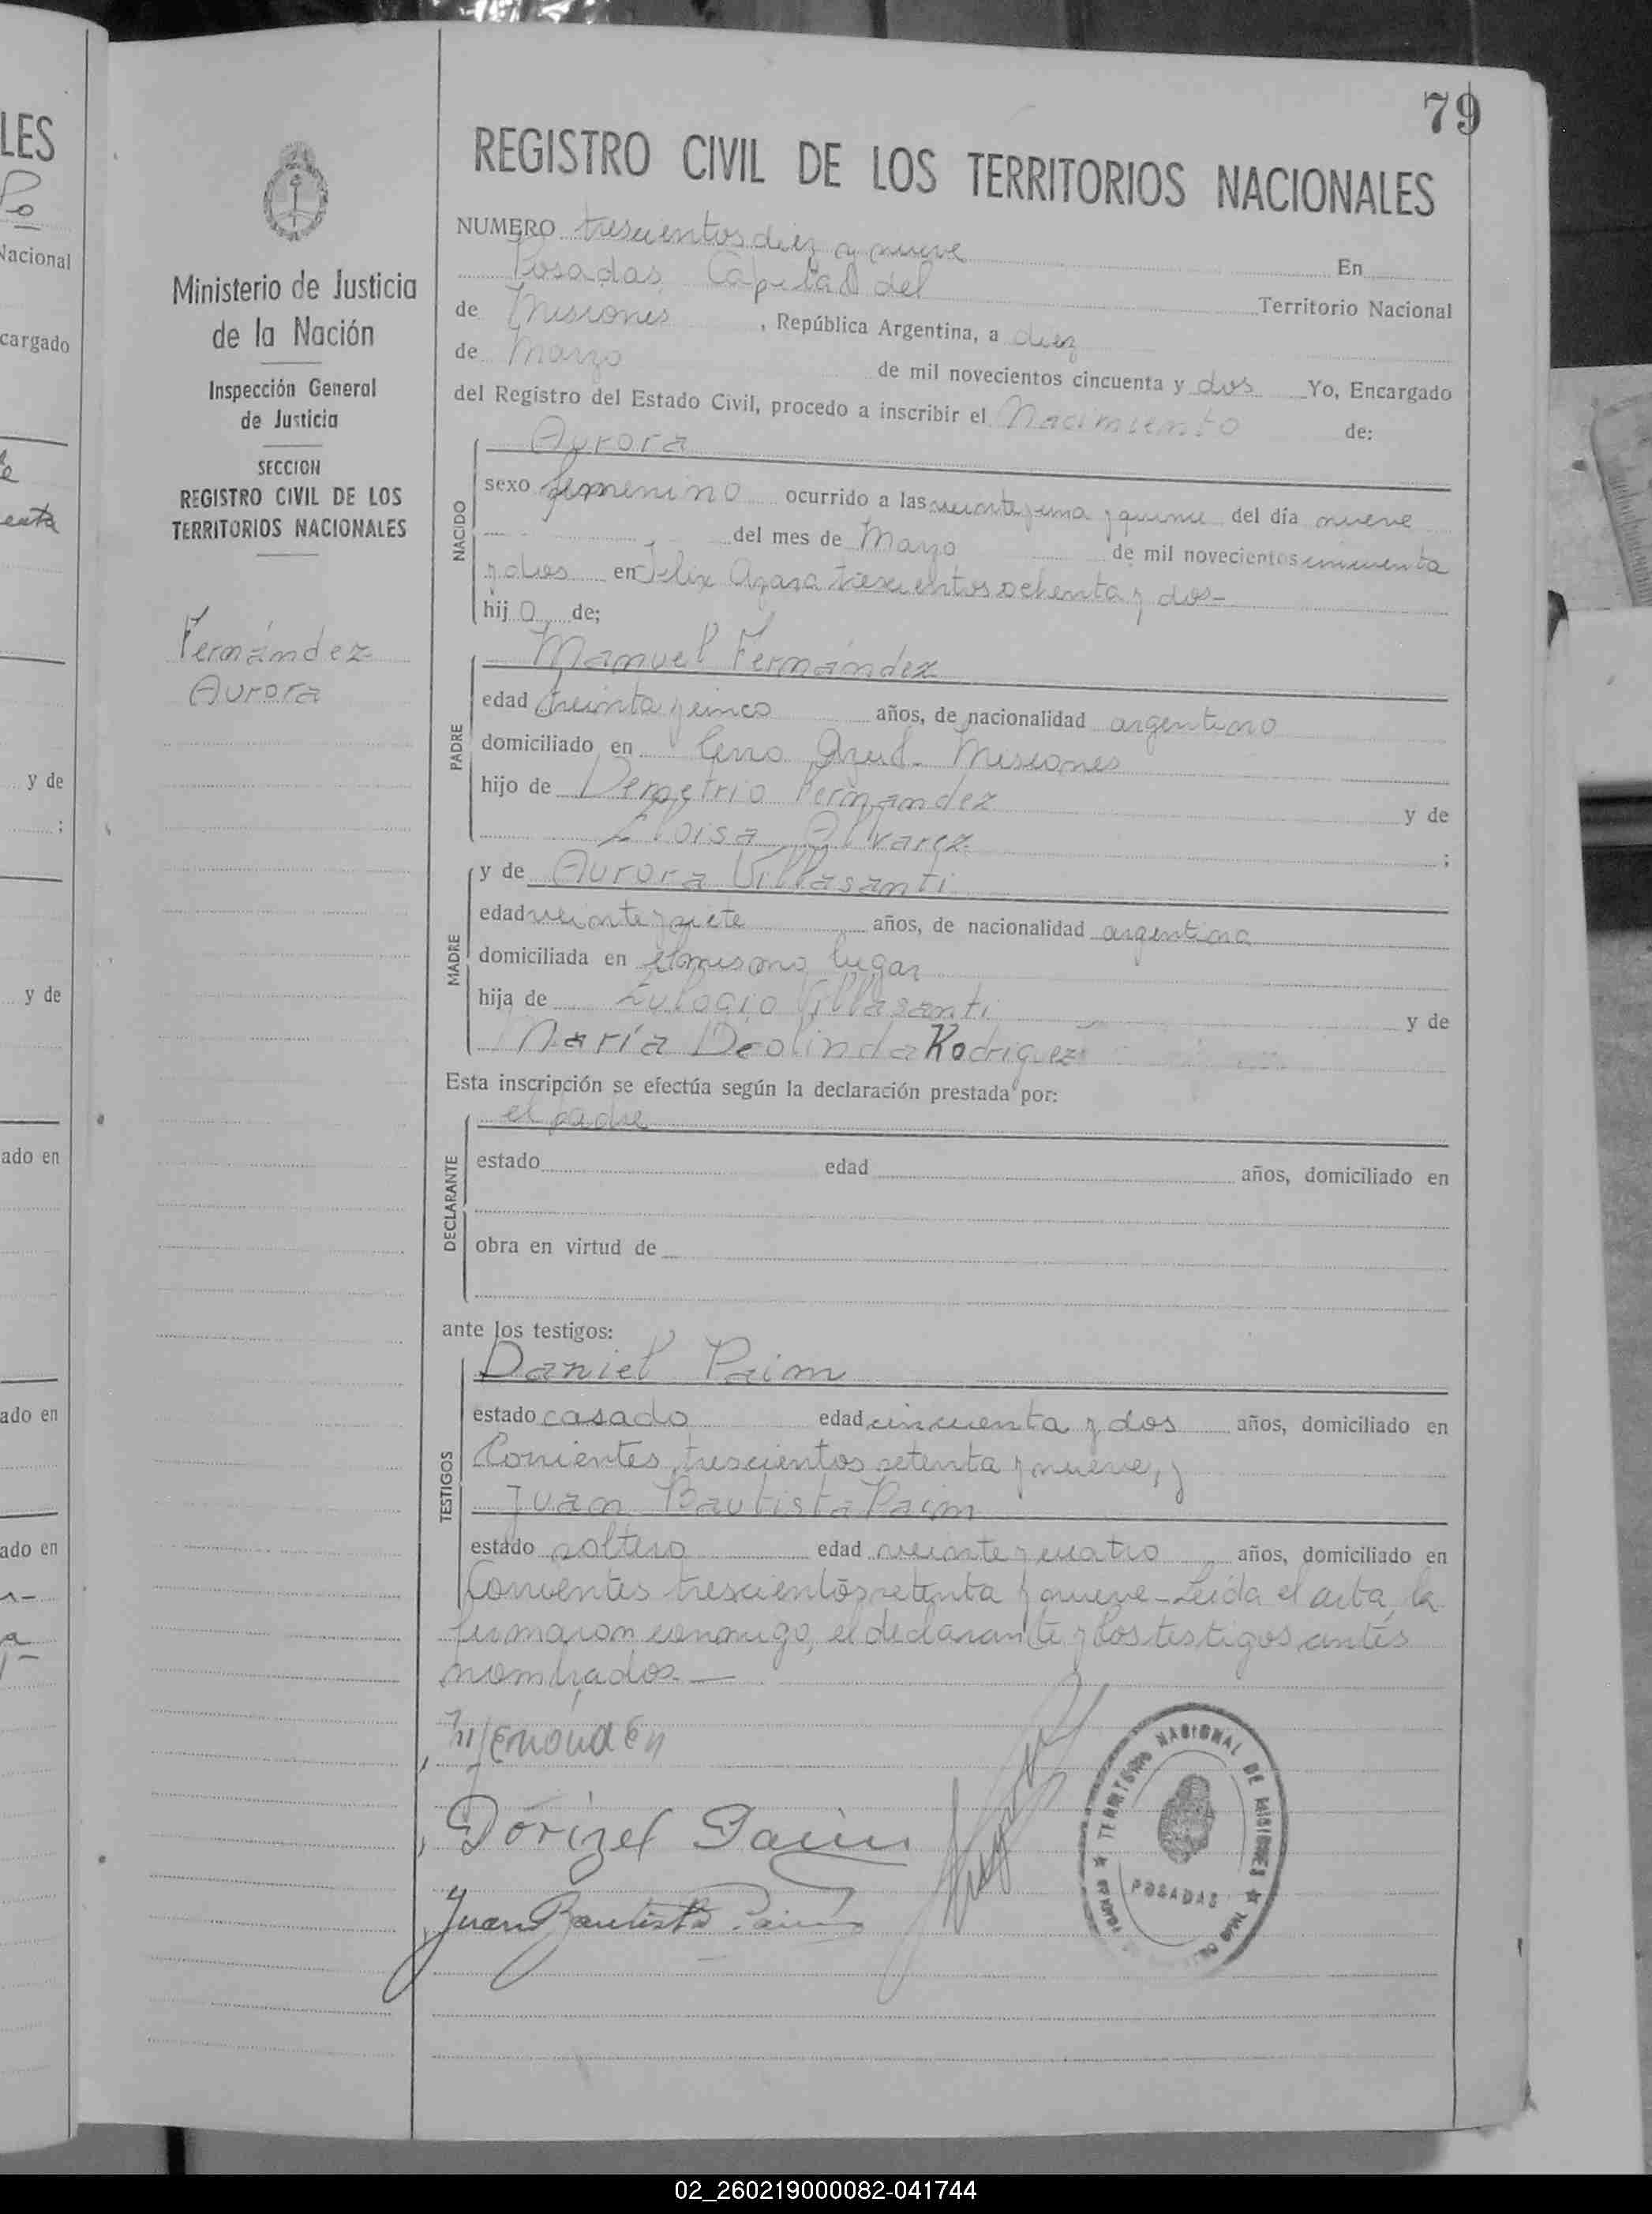 79
LES
Po
Nacional
cargado
y de
;
y de
ado en
ado en
ado en
Ministerio de Justicia
de la Nación
Inspección General
de Justicia
SECCION
REGISTRO CIVIL DE LOS
TERRITORIOS NACIONALES
Fernández
Aurora
REGISTRO CIVIL DE LOS TERRITORIOS NACIONALES
NUMERO trescientos diez y nueve
En
Posadas Capital del Territorio Nacional
de Misiones, República Argentina, a diez
de Marzo de mil novecientos cincuenta y dos Yo, Encargado
del Registro del Estado Civil, procedo a inscribir el Nacimiento de:
NACIDO
Aurora
sexo femenino ocurrido a las veinte y una y quince del día nueve
del mes de Marzo de mil novecientos cincuenta
y dos en Felix Azara trescientos ochenta y dos-
hija de;
PADRE
Manuel Fernández
edad treinta y cinco años, de nacionalidad argentino
domiciliado en Cerro Azul- Misiones
hijo de Demetrio Fernandez y de
Eloisa Alvarez ;
MADRE
y de Aurora Villasanti
edad veinte y siete años, de nacionalidad argentina
domiciliada en el mismo lugar
hija de Eulogio Villasanti y de
María Deolinda Rodriguez
Esta inscripción se efectúa según la declaración prestada por:
DECLARANTE
el padre
estado edad años, domiciliado en
obra en virtud de
ante los testigos:
TESTIGOS
Daniel Paim
estado casado edad cincuenta y dos años, domiciliado en
Corrientes trescientos setenta y nueve, y
Juan Bautista Paim
estado soltero edad veinte y cuatro años, domiciliado en
Corrientes trescientos setenta y nueve- Leída el acta, la
firmaron conmigo, el declarante y los testigos antes
nombrados.—
Paim
Juan Bautista Paim
TERRITORIO NACIONAL DE MISIONES
POSADAS
02_260219000082-041744